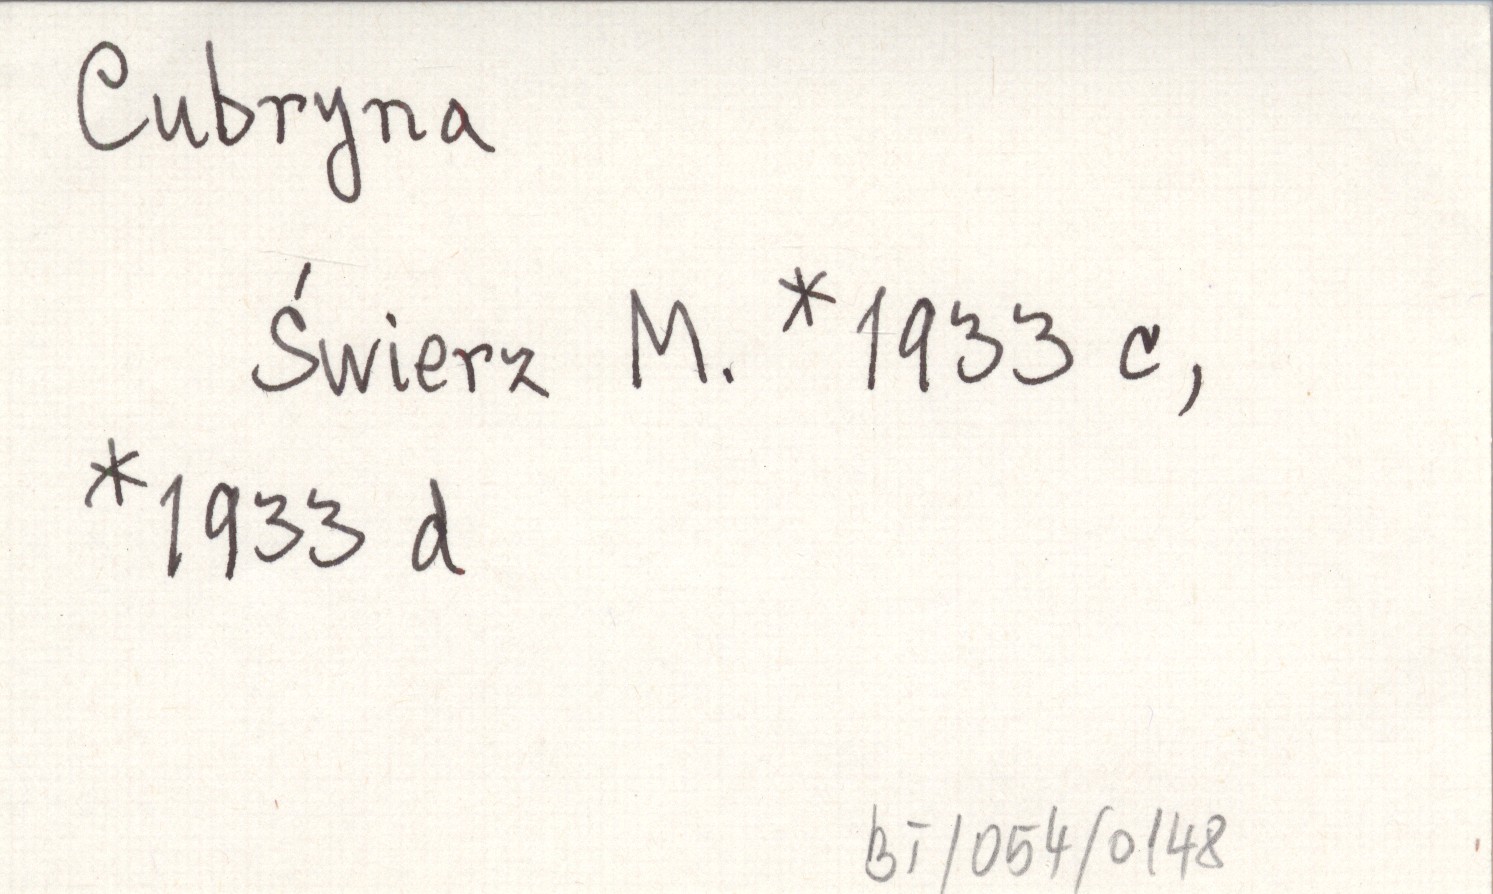 Cubryna
Świerz M. *1933 c,
*1933 d
BT/054/0148